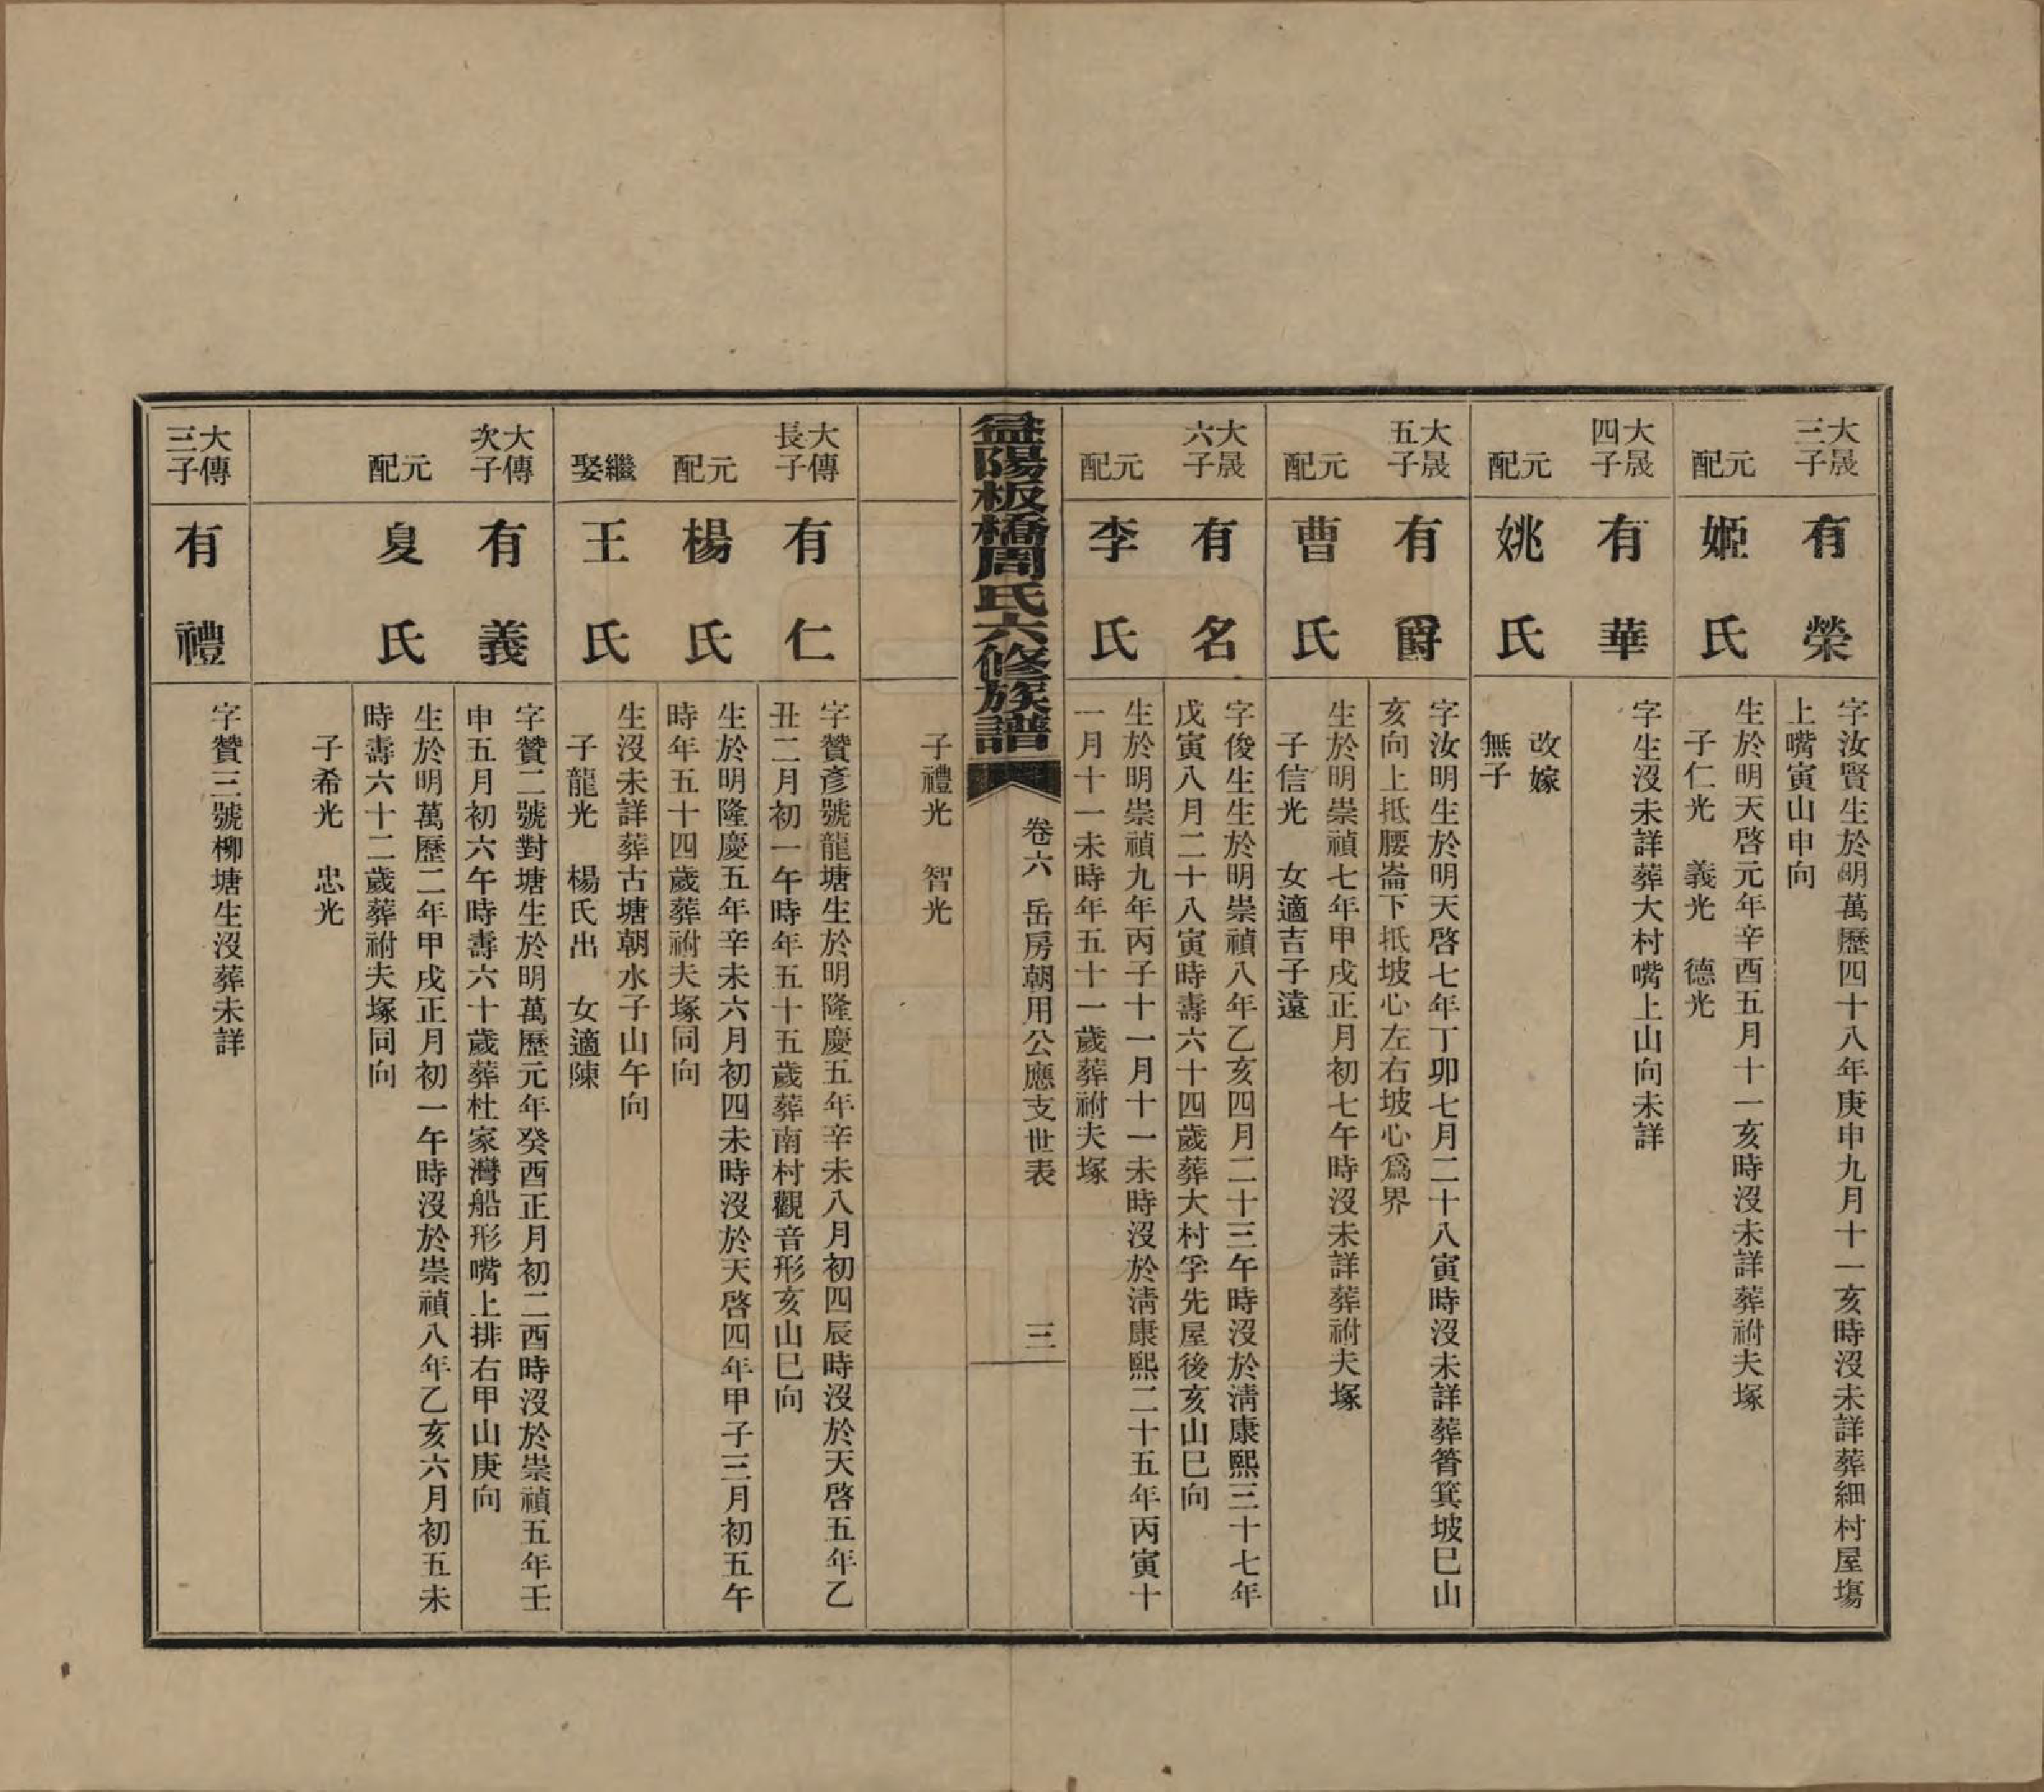 大晟
三子
有榮
字汝賢生於明萬歷四十八年庚申九月十一亥時沒未詳葬細村屋塲
上嘴寅山申向
元配
姬氏
生於明天啓元年辛酉五月十一亥時沒未詳葬祔夫塚
子仁光　義光　德光
大晟
四子
有華
字生沒未詳葬大村嘴上山向未詳
元配
姚氏
改嫁
無子
大晟
五子
有爵
字汝明生於明天啓七年丁卯七月二十八寅時沒未詳葬箵箕坡巳山
亥向上抵腰崙下抵坡心左右坡心爲界
元配
曹氏
生於明崇禎七年甲戌正月初七午時沒未詳葬祔夫塚
子信光　女適吉子遠
大晟
六子
有名
字俊生生於明崇禎八年乙亥四月二十三午時沒於淸康熙三十七年
戊寅八月二十八寅時壽六十四歲葬大村孚先屋後亥山巳向
元配
李氏
生於明崇禎九年丙子十一月十一未時沒於淸康熙二十五年丙寅十
一月十一未時年五十一歲葬祔夫塚
益陽板橋周氏六修族譜
卷六　岳房朝用公應支世表
三
子禮光　智光
大傳
長子
有仁
字贊彥號龍塘生於明隆慶五年辛未八月初四辰時沒於天啓五年乙
丑二月初一午時年五十五歲葬南村觀音形亥山巳向
元配
楊氏
生於明隆慶五年辛未六月初四未時沒於天啓四年甲子三月初五午
時年五十四歲葬祔夫塚同向
繼娶
王氏
生沒未詳葬古塘朝水子山午向
子龍光　楊氏出　女適陳
大傳
次子
有義
字贊二號對塘生於明萬歷元年癸酉正月初二酉時沒於崇禎五年壬
申五月初六午時壽六十歲葬杜家灣船形嘴上排右甲山庚向
元配
夏氏
生於明萬歷二年甲戌正月初一午時沒於崇禎八年乙亥六月初五未
時壽六十二歲葬祔夫塚同向
子希光　忠光
大傳
三子
有禮
字贊三號柳塘生沒葬未詳